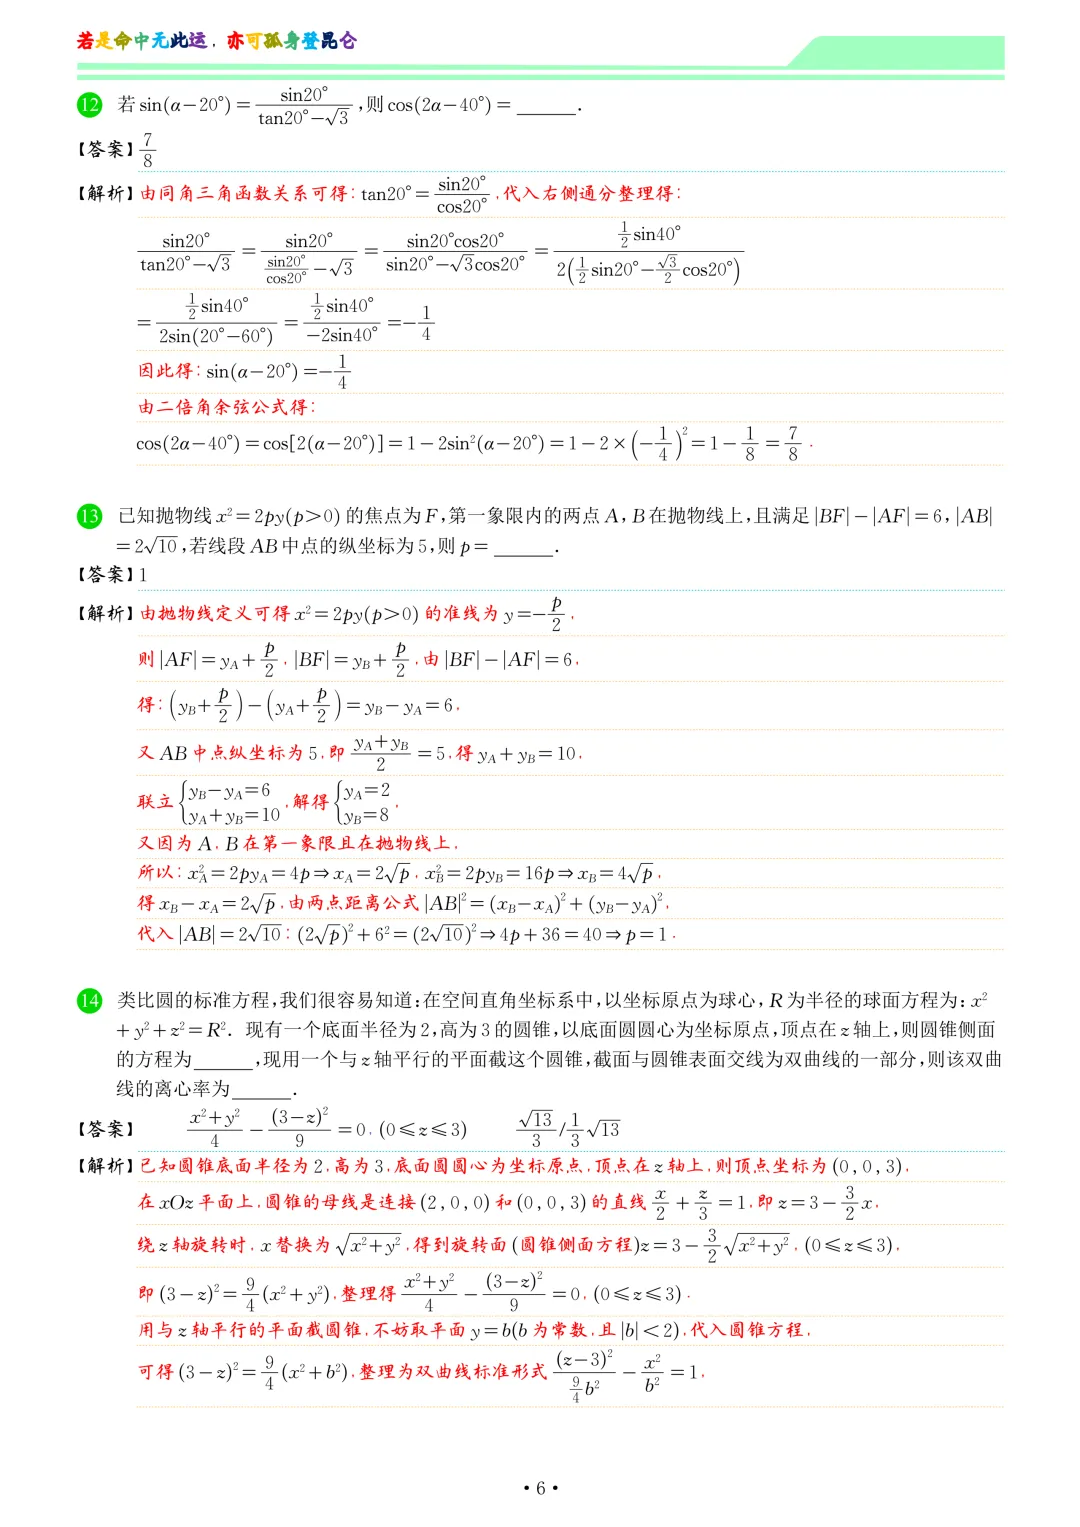 若是命中无此运，亦可孤身登昆仑
12 若 sin(α-20°)=sin20°/(tan20°-√3),则 cos(2α-40°)=______.
【答案】7/8
【解析】由同角三角函数关系可得：tan20°=sin20°/cos20°,代入右侧通分整理得：
sin20°/(tan20°-√3)=sin20°/(sin20°/cos20°-√3)=sin20°cos20°/(sin20°-√3cos20°)=(1/2 sin40°)/(2(1/2 sin20°-√3/2 cos20°))
=(1/2 sin40°)/(2sin(20°-60°))=(1/2 sin40°)/(-2sin40°)=-1/4
因此得：sin(α-20°)=-1/4
由二倍角余弦公式得：
cos(2α-40°)=cos[2(α-20°)]=1-2sin²(α-20°)=1-2×(-1/4)²=1-1/8=7/8.
13 已知抛物线 x²=2py(p>0) 的焦点为 F,第一象限内的两点 A,B 在抛物线上,且满足 |BF|-|AF|=6,|AB|
=2√10,若线段 AB 中点的纵坐标为 5,则 p=______.
【答案】1
【解析】由抛物线定义可得 x²=2py(p>0) 的准线为 y=-p/2,
则 |AF|=y_A+p/2,|BF|=y_B+p/2,由 |BF|-|AF|=6,
得：(y_B+p/2)-(y_A+p/2)=y_B-y_A=6,
又 AB 中点纵坐标为 5,即 (y_A+y_B)/2=5,得 y_A+y_B=10,
联立{y_B-y_A=6 y_A+y_B=10,解得{y_A=2 y_B=8,
又因为 A,B 在第一象限且在抛物线上,
所以：x_A²=2py_A=4p⇒x_A=2√p,x_B²=2py_B=16p⇒x_B=4√p,
得 x_B-x_A=2√p,由两点距离公式 |AB|²=(x_B-x_A)²+(y_B-y_A)²,
代入 |AB|=2√10：(2√p)²+6²=(2√10)²⇒4p+36=40⇒p=1.
14 类比圆的标准方程,我们很容易知道:在空间直角坐标系中,以坐标原点为球心,R 为半径的球面方程为:x²
+y²+z²=R². 现有一个底面半径为 2,高为 3 的圆锥,以底面圆圆心为坐标原点,顶点在 z 轴上,则圆锥侧面
的方程为______,现用一个与 z 轴平行的平面截这个圆锥,截面与圆锥表面交线为双曲线的一部分,则该双曲
线的离心率为______.
【答案】 (x²+y²)/4-(3-z)²/9=0,(0≤z≤3) √13/3/1/3√13
【解析】已知圆锥底面半径为 2,高为 3,底面圆圆心为坐标原点,顶点在 z 轴上,则顶点坐标为 (0,0,3),
在 xOz 平面上,圆锥的母线是连接 (2,0,0) 和 (0,0,3) 的直线 x/2+z/3=1,即 z=3-3/2 x,
绕 z 轴旋转时,x 替换为 √(x²+y²),得到旋转面 (圆锥侧面方程)z=3-3/2 √(x²+y²),(0≤z≤3),
即 (3-z)²=9/4(x²+y²),整理得 (x²+y²)/4-(3-z)²/9=0,(0≤z≤3).
用与 z 轴平行的平面截圆锥,不妨取平面 y=b(b 为常数,且 |b|<2),代入圆锥方程,
可得 (3-z)²=9/4(x²+b²),整理为双曲线标准形式 (z-3)²/(9/4 b²)-x²/b²=1,
·6·